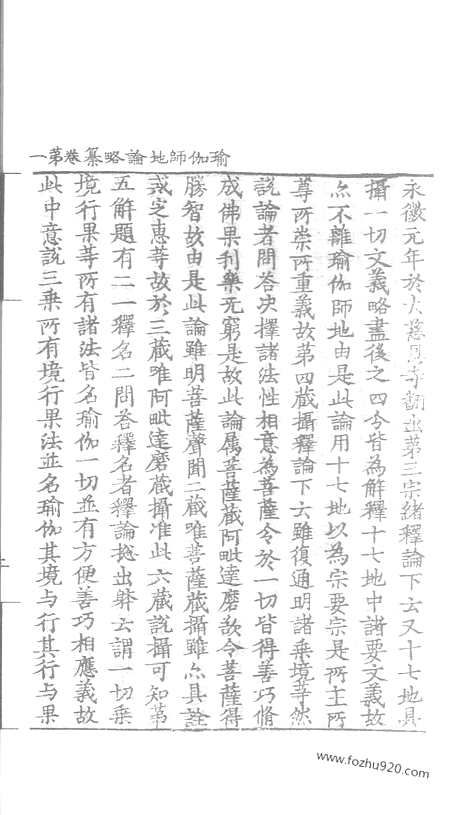 瑜伽師地論略纂卷第一
永徽元年於大慈恩寺翻出第三宗緒釋論下云又十七地具
攝一切文義略盡後之四分皆為解釋十七地中諸要文義故
亦不離瑜伽師地由是此論用十七地以為宗要宗是所主所
尊所崇所重義故第四藏攝釋論下云雖復通明諸乘境等然
說論者問答決擇諸法性相意為菩薩令於一切皆得善巧脩
成佛果利樂无窮是故此論属菩薩藏阿毗達磨欲令菩薩得
勝智故由是此論雖明菩薩聲聞二藏唯菩薩藏攝雖亦具詮
戒定惠等故於三藏唯阿毗達磨藏攝准此六藏說攝可知第
五解題有二一釋名二問答釋名者釋論揔出躰云謂一切乘
境行果等所有諸法皆名瑜伽一切並有方便善巧相應義故
此中意說三乘所有境行果法並名瑜伽其境与行其行与果
www.fozhu920.com